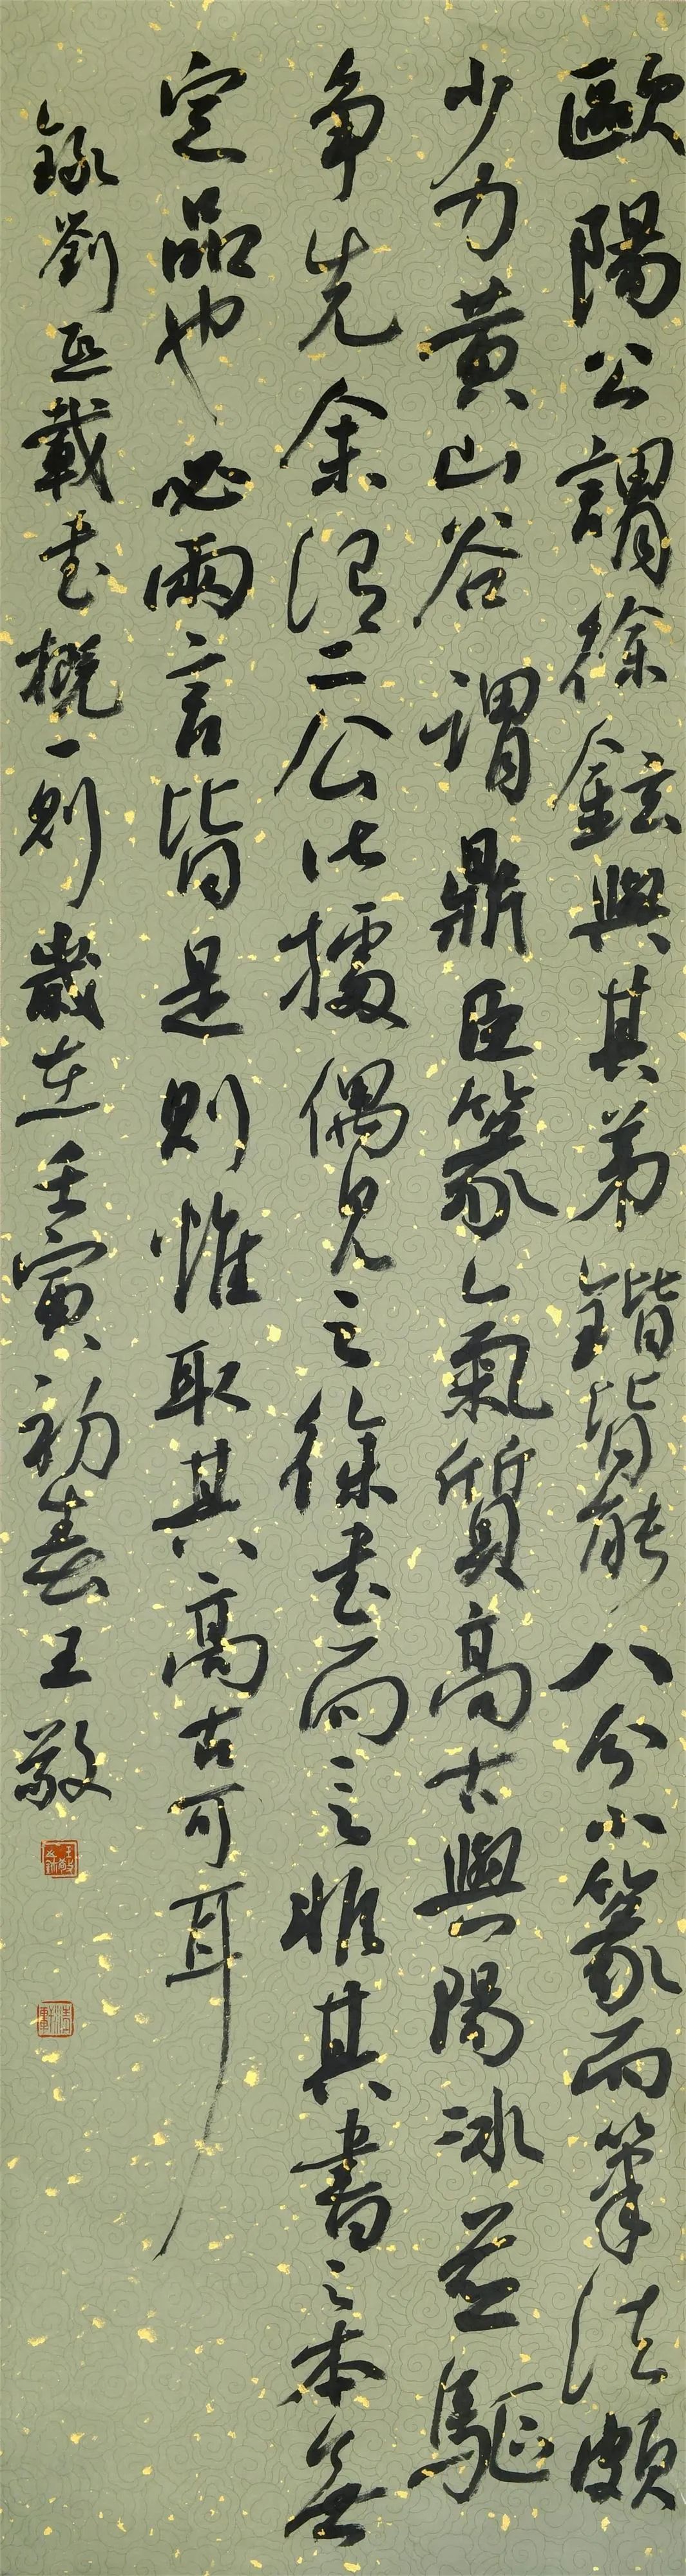 歐陽公謂徐鉉與其弟鍇皆能八分小篆而筆法頗
少力黃山谷謂鼎臣篆氣質高古與陽冰並驅
争先余謂二公皆據偶見之徐書而言非其書之本無
定品也必兩言皆是則惟取其高古可耳
録劉熙載書概一則歲在壬寅初春王敬